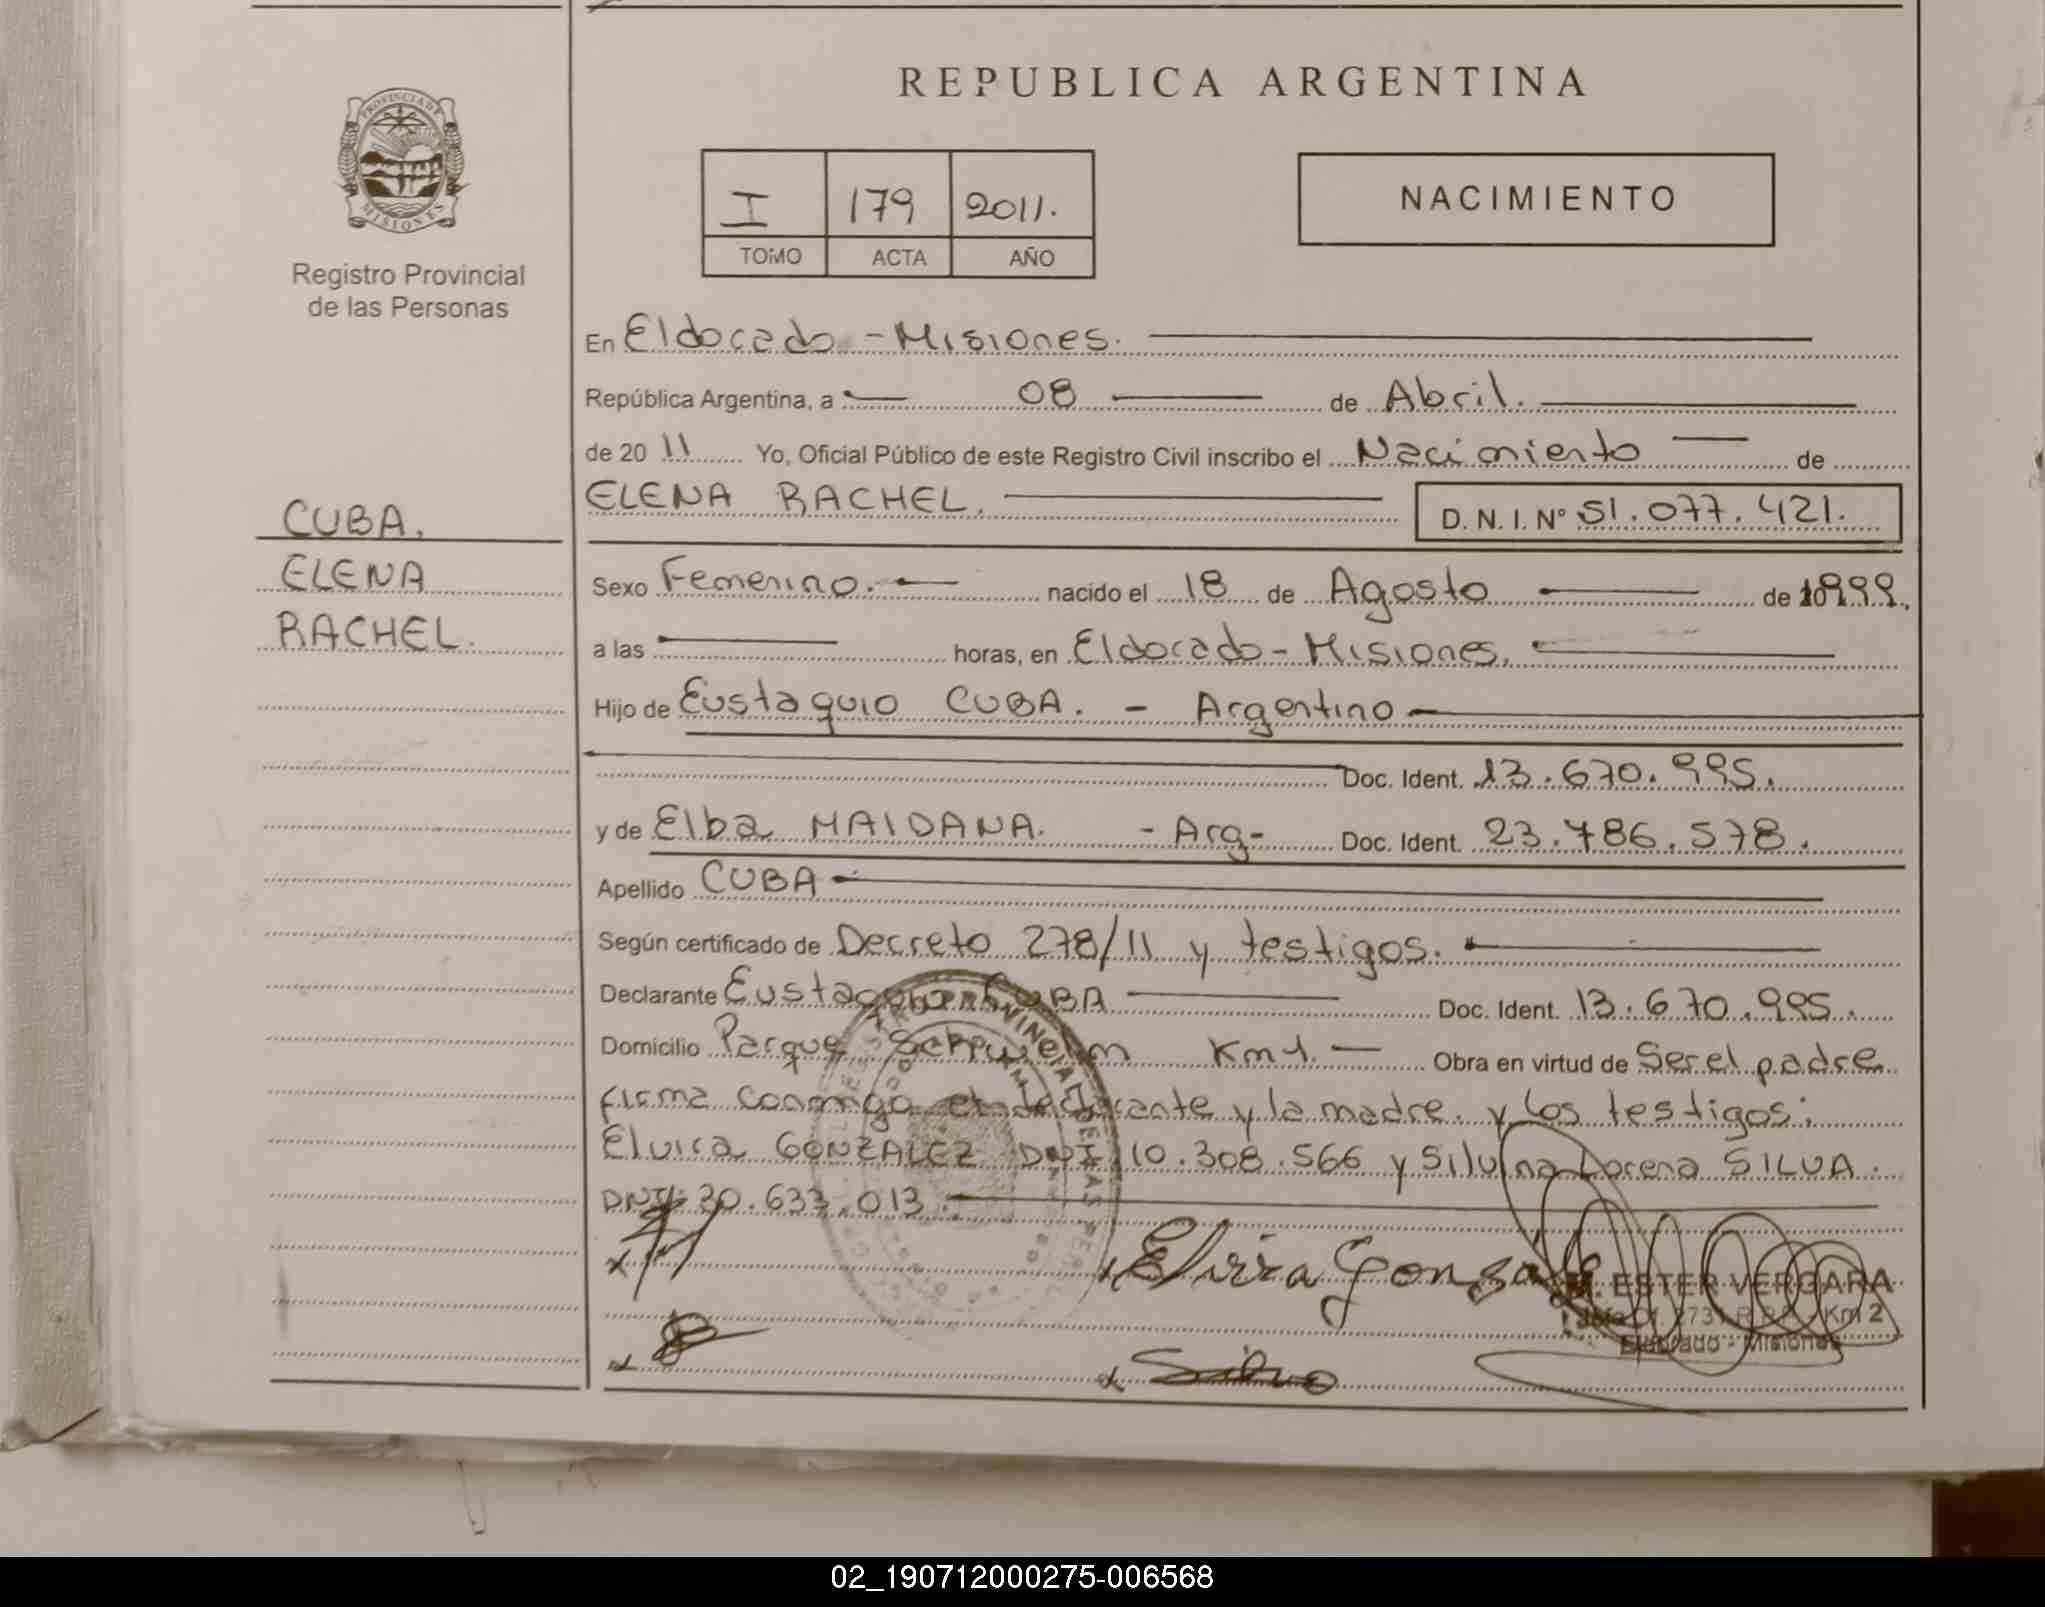 REPUBLICA ARGENTINA
PROVINCIA DE MISIONES
Registro Provincial
de las Personas
I 179 2011.
TOMO ACTA AÑO
NACIMIENTO
En Eldorado - Misiones.
República Argentina, a 08 de Abril.
de 2011 Yo, Oficial Público de este Registro Civil inscribo el Nacimiento de
ELENA RACHEL. D. N. I. Nº 51.077.421.
CUBA.
ELENA
RACHEL.
Sexo Femenino. nacido el 18 de Agosto de 1999.
a las horas, en Eldorado - Misiones.
Hijo de Eustaquio CUBA. - Argentino
Doc. Ident. 13.670.995.
y de Elba MAIDANA. - Arg- Doc. Ident. 23.786.578.
Apellido CUBA
Según certificado de Decreto 278/11 y testigos.
Declarante Eustaquio CUBA Doc. Ident. 13.670.995.
Domicilio Parque Km 1. Obra en virtud de Ser el padre
firma conmigo el declarante y la madre. y los testigos:
Elvira GONZALEZ DNI 10.308.566 y Silvina Lorena SILVA.
DNI: 30.633.013.
x
x Elvira Gonzalez
ESTER VERGARA
Km 2
Eldorado - Misiones
x
x Silva
02_190712000275-006568